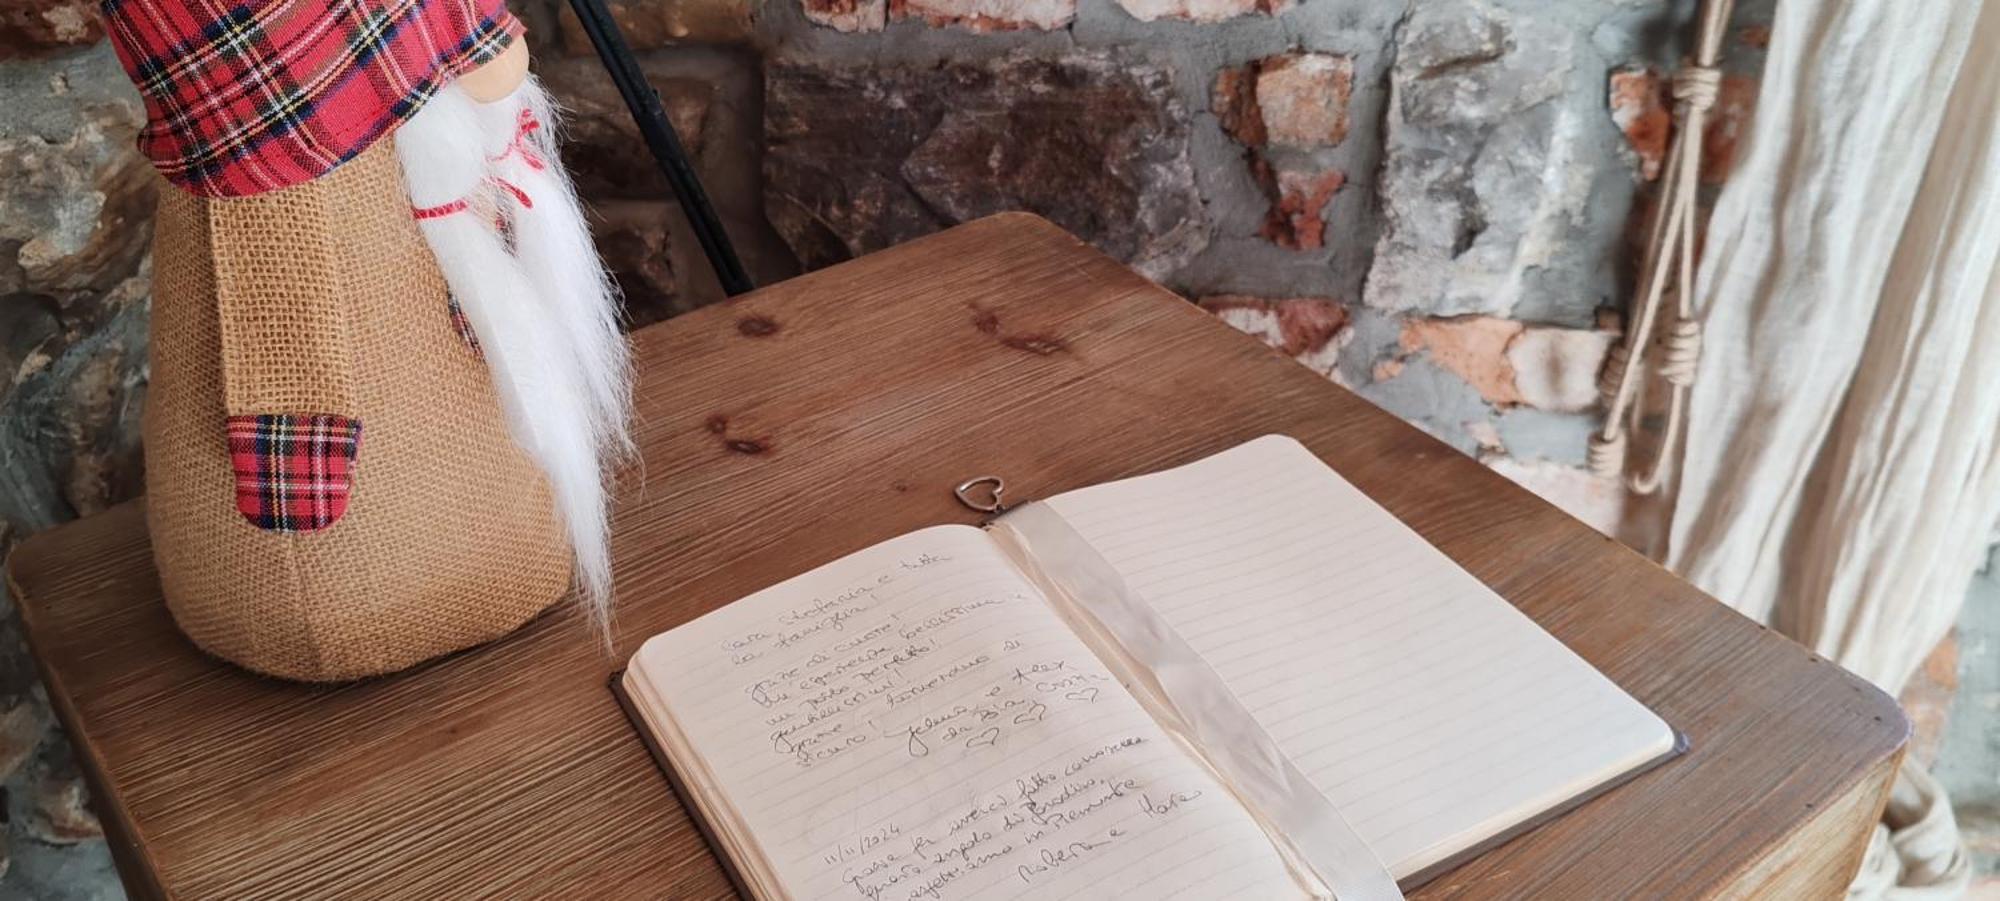 Cara Stefania e tutta
la famiglia!
grazie di cuore!
bellissima e
un posto perfetto!
gentilezza!
grazie! Torneremo di
sicuro! e Alex
da
11/11/2024
Grazie per averci fatto conoscere
questo angolo di Paradiso.
Vi aspettiamo in Piemonte
Roberta e